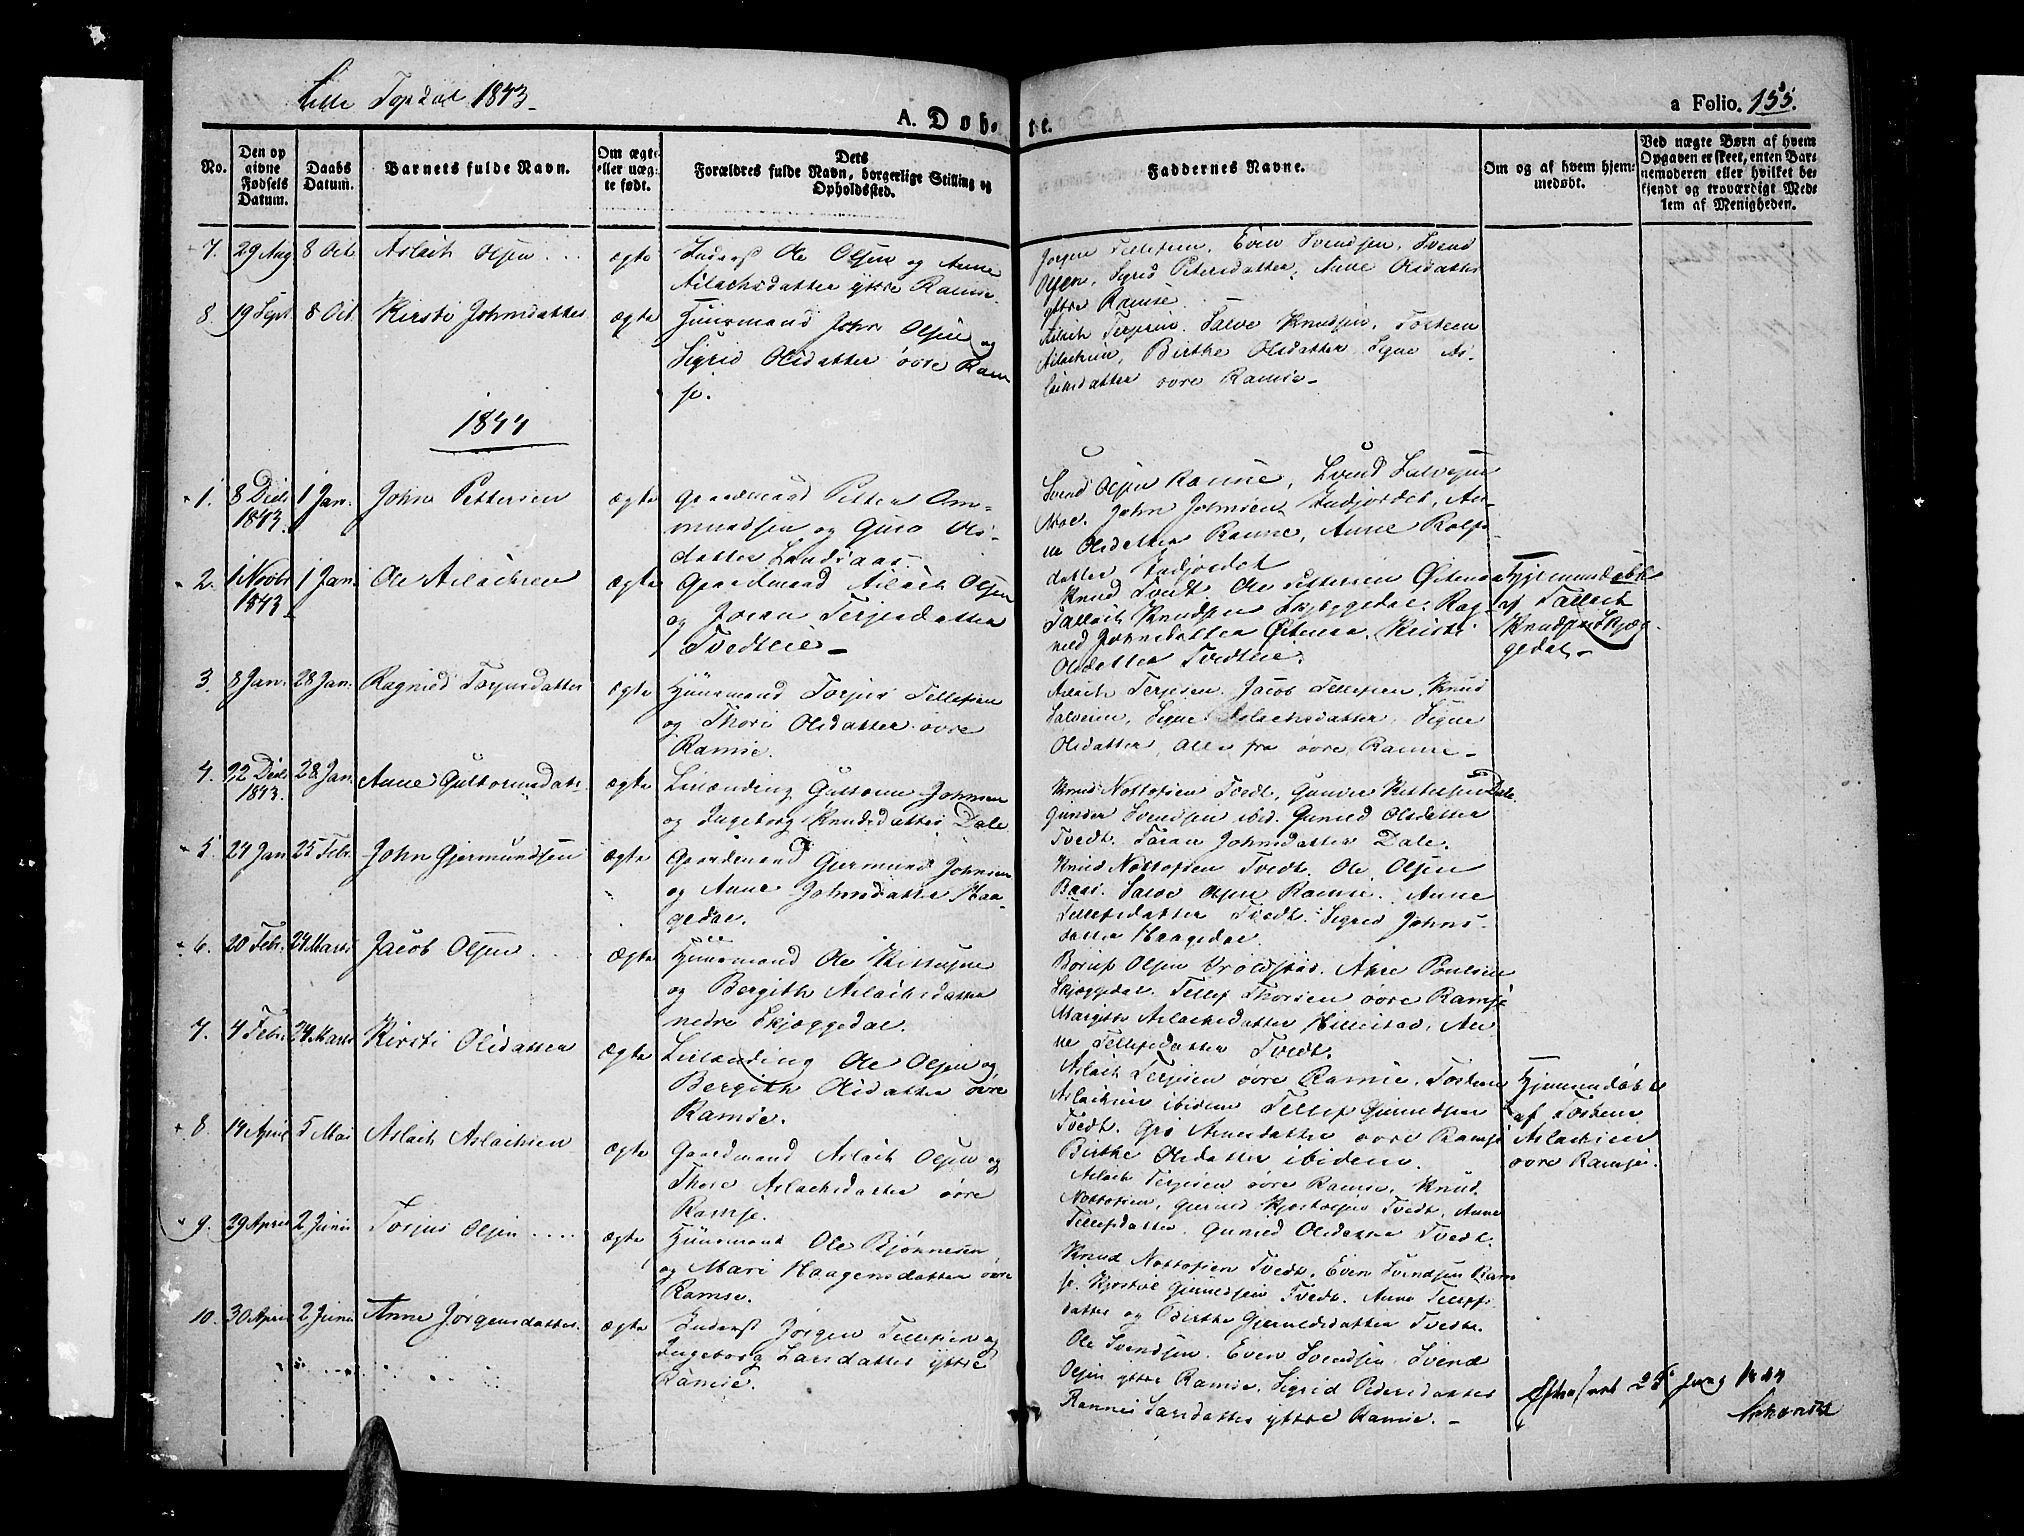 Lille Topdal 1843.
A. Døb- te.
a Folio. 155.
No.
Den op
givne
Fødsels
Datum.
Daabs
Datum.
Barnets fulde Navn.
Om ægte
eller uæg-
te født.
Dets
Forældres fulde Navn, borgerlige Stilling og
Opholdssted.
Faddernes Navne.
Om og af hvem hjem-
medøbt.
Ved uægte Børn af hvem
Opgaven er skeet, enten Bar-
nemoderen eller hvilket be-
kjendt og troværdigt Med-
lem af Menigheden.
7. 29 Aug 8 Oct. Aslach Olsen ægte
Inderst Ole Olsen og Anne
Aslachsdatter yttre Ramse.
Jørgen Tellefsen, Even Svendsen, Svend
Olsen, Sigrid Petersdatter, Anne Olsdatter
yttre Ramse
8. 19 Sept 8 Oct. Kirsti Johnsdatter ægte
Huusmand John Olsen og
Sigrid Olsdatter øvre Ram
se.
Aslach Terjesen, Salve Knudsen, Tosteen
Aslachsen, Birthe Olsdatter, Signe As-
lachsdatter øvre Ramse
1844
1. 8 Decbr 1843. 1 Jan. John Pettersen ægte
Gaardmand Petter Om-
mundsen og Guro Ols-
datter Landsaas.
Svend Olsen Ramse, Svend Salvesen
Moe, John Johnsen Indjordet, An-
ne Olsdatter Ramse, Anne Rolfs
datter Indjordet
2. 1 Novbr 1843 1 Jan. Ole Aslachsen ægte
Gaardmand Aslach Olsen
og Joran Terjesdatter
Tvedtlie
Knud Tvedt, Ole Pettersen Østenaa
Tallach Knudsen Skjeggedal, Rag-
nild Johnsdatter Østenaa, Kirsti
Olsdatter Tvedtlie.
Hjemmedøbt
af Tallach
Knudsen Skjæg-
gedal.
3. 8 Jan. 28 Jan. Ragnild Torjusdatter ægte
Huusmand Torjus Tellefsen
og Thori Olsdatter øvre
Ramse.
Aslach Terjesen, Jacob Tellefsen, Knud
Salvesen, Signe Aslachsdatter, Signe
Olsdatter, alle fra øvre Ramse
4. 22 Decbr 1843. 28 Jan. Anne Guttormsdatr ægte
Leilænding Guttorm Johnsen
og Ingeborg Knudsdatter Dale
Knud Nottofsen Tvedt, Gunder Dale.
Gunder Svendsen ibid. Gunild Olsdatter
Tvedt. Taran Johnsdatter Dale.
5. 24 Jan 25 Febr. John Gjermundsen ægte
Gaardemand Gjermund Johnsen
og Anne Johnsdatter Haa-
gedal.
Knud Nottofsen Tvedt, Ole Olsen
Baas. Salve Olsen Ramse. Anne
Tellefsdatter Tvedt. Sigrid Johns-
datter Haagedal.
6. 20 Febr. 24 Marts Jacob Olsen ægte
Huusmand Ole
og Bergith Aslachsdatter
nedre Skjæggedal.
Børup Olsen Troldstad, Aase Poulsen
Skjæggedal. Tellef Thorsen øvre Ramse
Margithe Aslachsdatter Hillestad, An
ne Tellefsdatter Tvedt.
7. 4 Febr. 24 Marts Kirsti Olsdatter ægte
Leilænding Ole Olsen og
Bergith Olsdatter øvre
Ramse.
Aslach Terjesen øvre Ramse, Tosteen
Aslachsen ibidem Tellef Gunuldsen
Tvedt. Gro Arnesdatter øvre Ramse
Birthe Olsdatter ibidem.
Hjemmedøbt
af Tosten
Aslachsen
øvre Ramse.
8. 14 April 5 Mai Aslach Aslachsen ægte
Gaardmand Aslach Olsen og
Thore Aslachsdatter øvre
Ramse.
Aslach Terjesen øvre Ramse, Knud
Nottofsen, Gunuld Kjostolfsen Tvedt, Anne
Tellefsdatter, Gunild Olsdatter Tvedt.
9. 29 April 2 Junii Torjus Olsen ægte
Huusmand Ole Bjørnesen
og Mari Haagensdatter øvre
Ramse.
Knud Nottofsen Tvedt, Even Svendsen Ram
se, Kjostol Gunuldsen Tvedt. Anne Tellefs-
datter og Birthe Gunuldsdatter Tvedt.
10. 30 April 2 Junii Anne Jørgensdatter ægte
Inderst Jørgen Tellefsen og
Ingeborg Larsdatter yttre
Ramse.
Ole Svendsen, Even Svendsen, Svend
Olsen yttre Ramse, Sigrid Pedersdatter
Larsdatter yttre Ramse.
1844